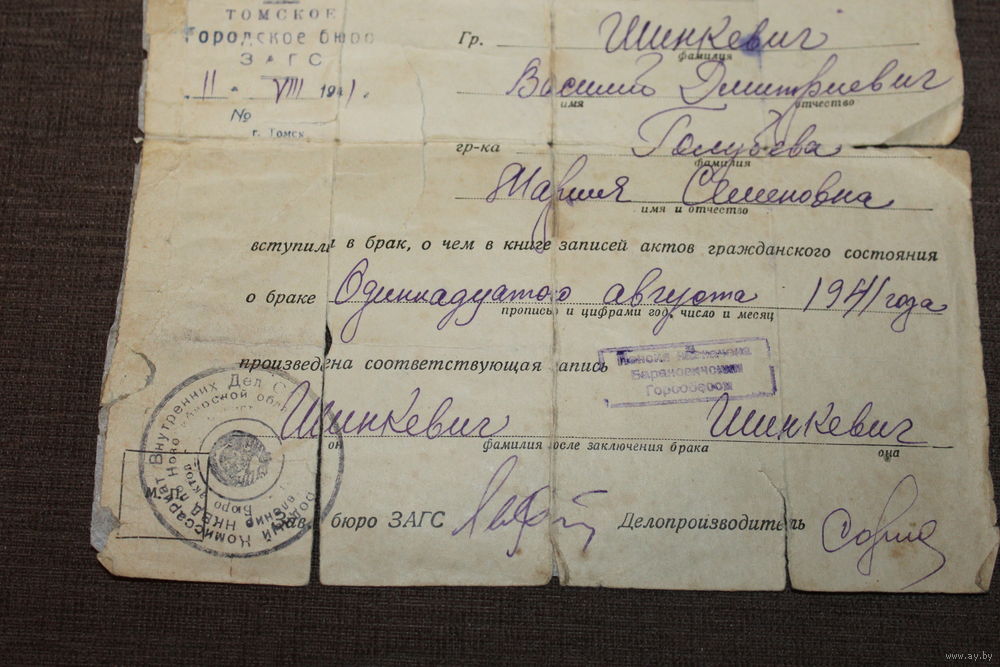 ТОМСКОЕ
Городское бюро
ЗАГС
11 - VIII 1941 г.
№
г. Томск
Гр. Шинкевич
фамилия
Василий Дмитриевич
имя отчество
гр-ка Голубева
фамилия
Мария Семеновна
имя и отчество
вступили в брак, о чем в книге записей актов гражданского состояния
о браке Одиннадцатого августа 1941 года
прописью и цифрами год, число и месяц
произведена соответствующая запись
Пенсия назначена
Барановичским
Горсобесом
Шинкевич Шинкевич
он фамилия после заключения брака она
М. П.
Зав. бюро ЗАГС Делопроизводитель
Комиссариат Внутренних Дел
НКВД по Ново
Бюро актов
www.ay.by